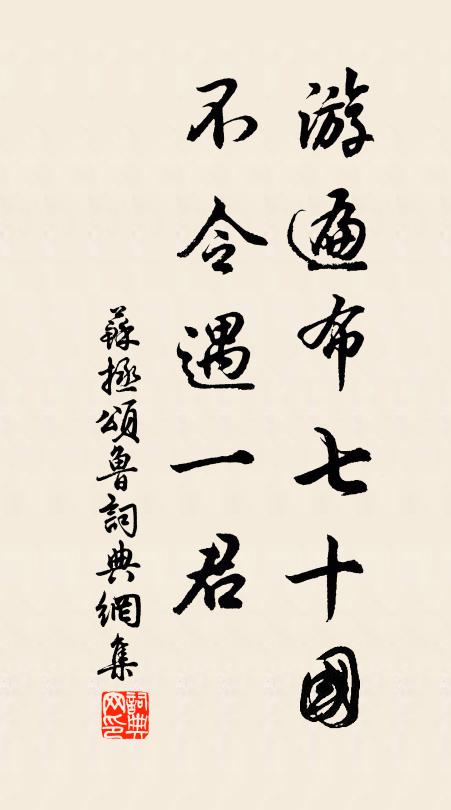 游遍布七十國
不令遇一君
蘇拯頌魯詞典網集
詞典網印